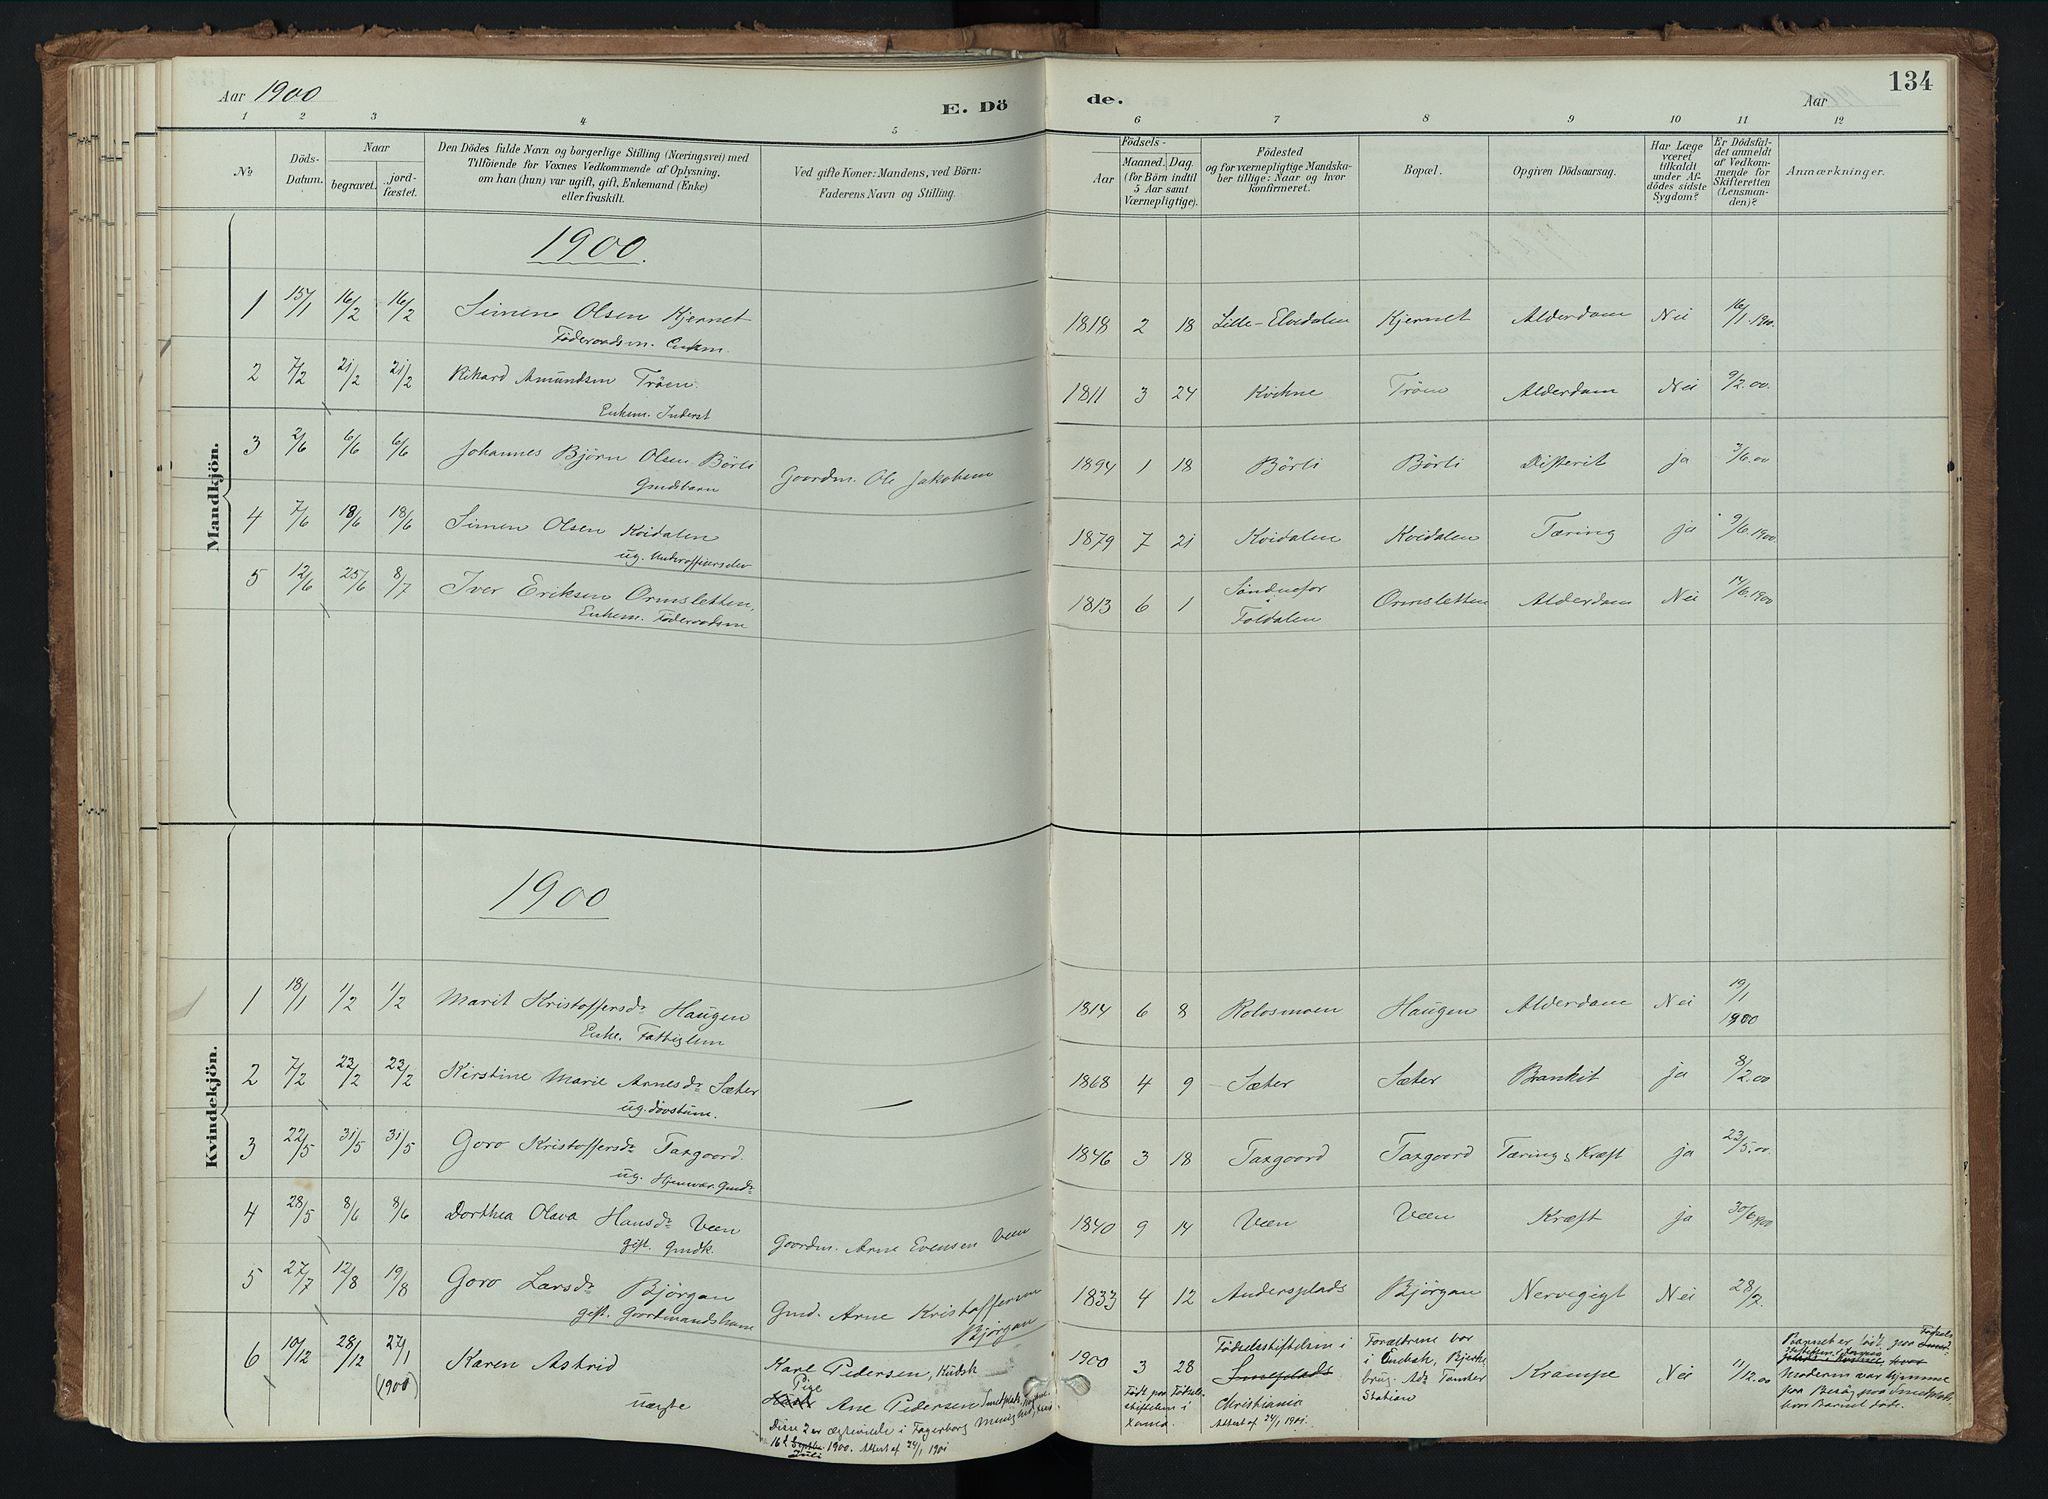 Aar 1900
E. Dö
de.
Aar
134
1 2 3 4 5 6 7 8 9 10 11 12
№
Döds-
Datum.
Naar
begravet.
jord-
fæstet.
Den Dödes fulde Navn og borgerlige Stilling (Næringsvei) med
Tilföiende for Voxnes Vedkommende af Oplysning,
om han (hun) var ugift, gift, Enkemand (Enke)
eller fraskilt.
Ved gifte Koner: Mandens, ved Börn:
Faderens Navn og Stilling.
Födsels-
Aar
Maaned. Dag.
(for Börn indtil
5 Aar samt
Værnepligtige).
Födested
og for værnepligtige Mandska-
ber tillige: Naar og hvor
konfirmeret.
Bopæl.
Opgiven Dödsaarsag.
Har Læge
været
tilkaldt
under Af-
dödes sidste
Sygdom?
Er Dödsfal-
det anmeldt
af Vedkom-
mende for
Skifteretten
(Lensman-
den)?
Anmærkninger.
Mandkjön.
1900.
1 15/1 16/2 16/2 Simen Olsen Kjernet 1818 2 18 Lille-Elvdalen Kjernet Alderdom Nei 16/1.1900.
Föderaadsm. Enkem.
2 7/2 21/2 21/2 Rikard Amundsen Tröen. 1811 3 24 Kvikne Tröen Alderdom Nei 9/2.00.
Enkem. Inderst
3 2/6 6/6 6/6 Johannes Björn Olsen Börli Gaardm. Ole Jakobsen 1894 1 18 Börli Börli Difterit ja 3/6.00
Gmdsbarn
4 7/6 18/6 18/6 Simen Olsen Kvidalen 1879 7 21 Kvidalen Kvidalen Tæring ja 9/6.1900
ug. Underofficerselev
5 12/6 25/6 8/7 Iver Eriksen Ormsletten, 1813 6 1 Söndre Foldalen Ormsletten Alderdom Nei 14/6.1900
Enkem. Föderaadsm
Kvindekjön.
1900
1 18/1 1/2 1/2 Marit Kristoffersdr Haugen 1814 6 8 Kolosmoen Haugen Alderdom Nei 19/1 1900
Enke. Fattiglem
2 7/2 23/2 23/2 Kirstine Marie Arnesdr Sæter — 1868 4 9 Sæter Sæter Bronkit ja 8/2.00
ug. dövstum.
3 22/5 31/5 31/5 Goro Kristoffersdr Taagaard. 1846 3 18 Taagaard Taagaard Tæring & Kræft ja 23/5.00.
ug. Hjemvær. Gmdr
4 28/5 8/6 8/6 Dorthea Olava Hansdr Veen Gaardm. Arne Evensen Veen 1840 9 14 Veen Veen Kræft ja 30/6 1900
gift. Gmdk.
5 27/7 12/8 19/8 Goro Larsdr Björgan Gmd. Arne Kristoffersen Björgan 1833 4 12 Andersplads Björgan Nervegigt Nei 28/7.
gift. Gaardmandskone
6 10/12 28/12 27/1 (1900) Karen Astrid
uægte
Karl Pedersen, Kudsk
Pige Ane Pedersen Smedplads,
Disse 2 er ægteviede i Fagerborg Menighed,
16de Juli 1900. Attest af 24/1 1901
1900 3 28
Födt paa Födsels-
stiftelsen i
Xania.
Födselsstiftelsen i
Smedplads
Christiania
Attest af 24/1 1901.
Forældrene bor
i Enebak, Bjerke
brug. Adr Tomter
Station
Krampe Nei 11/12.00
Barnet er födt paa Födsels-
stiftelsen i Xania
Moderen var hjemme
paa Besög paa Smedplads,
hvor Barnet döde.